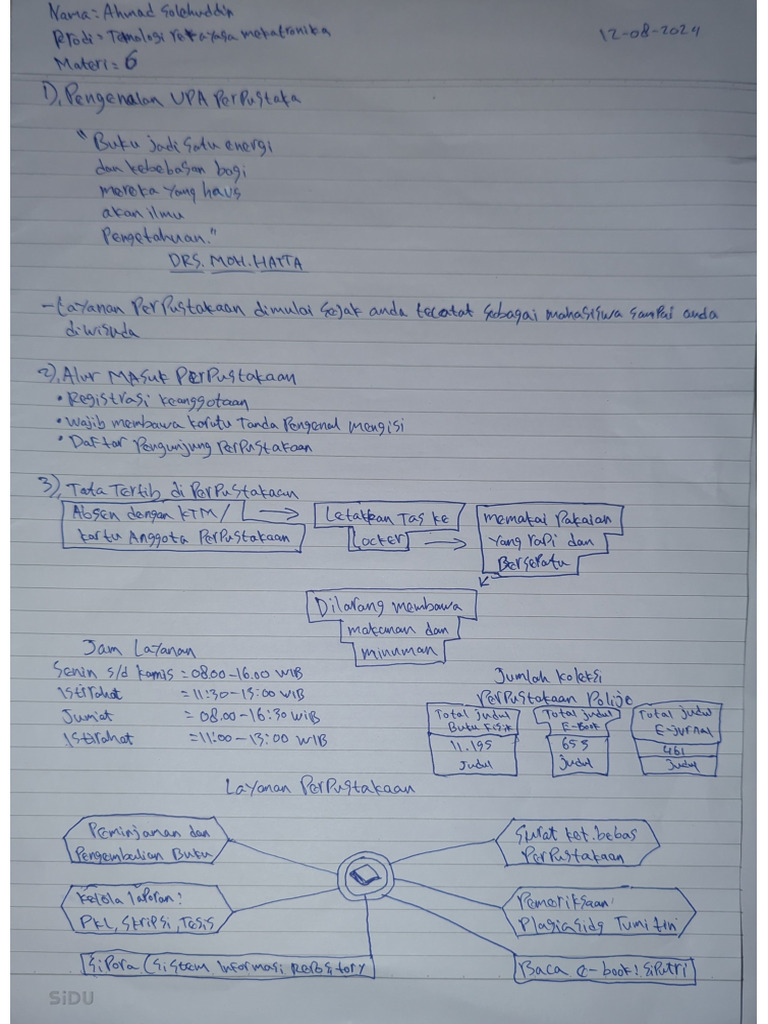 Nama: Ahmad Solehuddin
Prodi: Temologi rekayasa mekatronika
12-08-2024
Materi: 6
1), Pengenalan UPA PerPustaka
"Buku jadi satu energi
dan kebebasan bagi
mereka yang haus
akan ilmu
Pengetahuan."
DRS. MOH. HATTA
- Layanan PerPustakaan dimulai sejak anda tecatat sebagai mahasiswa sampai anda
diwisuda
2), Alur MASUK PERPUStakaan
• Registrasi keanggotaan
• wajib membawa karutu Tanda Pengenal mengisi
• Daftar Pengunjung PerPustakaan
3), Tata Tertib di PerPustakaan
Absen dengan KTM/
kartu Anggota PerPustakaan
Letakkan Tas ke
Locker
memakai Pakaian
yang rapi dan
Bersepatu
Dilarang membawa
makanan dan
minuman
Jam Layanan
Senin s/d kamis = 08.00-16.00 WIB
Istirahat = 11:30-13:00 WIB
Jumat = 08.00-16:30 WIB
Istirahat = 11:00-13:00 WIB
Jumlah Koleksi
PerPustakaan Polije
Total judul
Buku Fisik
11.195
Judul
Total judul
E-Book
655
judul
Total judul
E-jurnal
461
Judul
Layanan PerPustakaan
Peminjaman dan
Pengembalian Buku
Surat ket. bebas
PerPustakaan
Kelola laporan:
PKL, Skripsi, Tesis
Pemeriksaan
Plagiasids Turnitin
SiPora (Sistem Informasi Repository
Baca e-book: SiPutri
SiDU